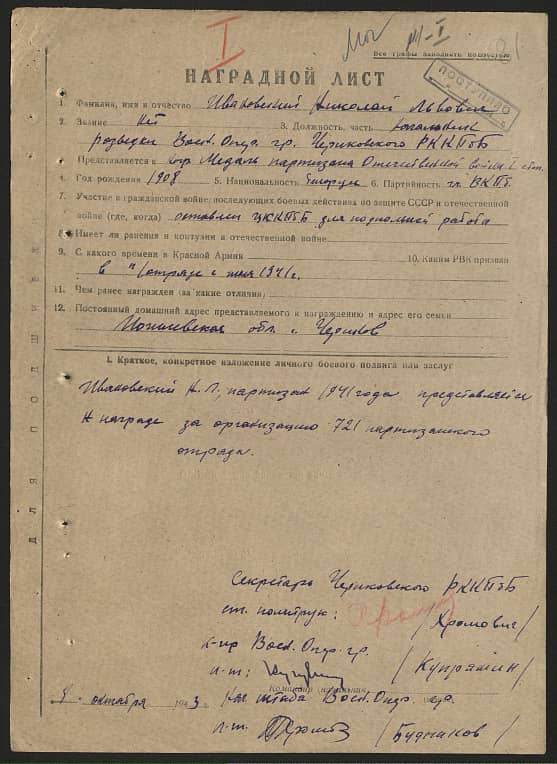 I
М-I
Все графы заполнять полностью
ПОСТУПИЛО
НАГРАДНОЙ ЛИСТ
1. Фамилия, имя и отчество Ивановский Николай Львович
2. Звание нет 3. Должность, часть начальник
разведки Воен. Опер. гр. Чериковского РККПбБ
Представляется к пр. Медаль партизана Отечественной война I ст.
4. Год рождения 1908 5. Национальность белорус 6. Партийность чл. ВКПб.
7. Участие в гражданской войне, последующих боевых действиях по защите СССР и отечественной
войне (где, когда) оставлен ЦККПбБ для подпольной работа
8. Имеет ли ранения и контузии в отечественной войне
9. С какого времени в Красной Армии 10. Каким РВК призван
в п/отряде с июля 1941 г.
11. Чем ранее награжден (за какие отличия)
12. Постоянный домашний адрес представляемого к награждению и адрес его семьи
Могилевская обл. г. Чериков
I. Краткое, конкретное изложение личного боевого подвига или заслуг
Ивановский Н. Л., партизан 1941 года представляется
к награде за организацию 721 партизанского
отряда.
ДЛЯ ПОДШИВКИ
Секретарь Чериковского РККПбБ
ст. политрук: /Хромович/
к-ир Воен. Опер. гр.
л-т: /Купряшин/
октября 1943 г. Нач штаба Воен. Опер. гр.
л-т. /Будников/